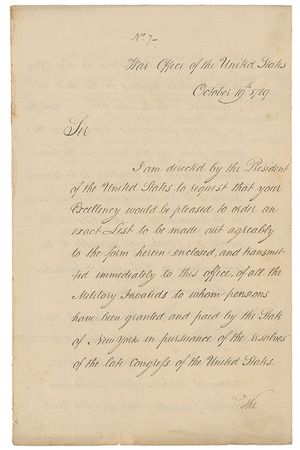 No. 7-
War Office of the United States
October 19th 1789.
Sir
I am directed by the President
of the United States to request that your
Excellency would be pleased to order an
exact List to be made out agreably
to the form herein enclosed, and transmit-
ted immediately to this office, of all the
Military Invalids to whom pensions
have been granted and paid by the State
of New York in pursuance of the resolves
of the late Congress of the United States.